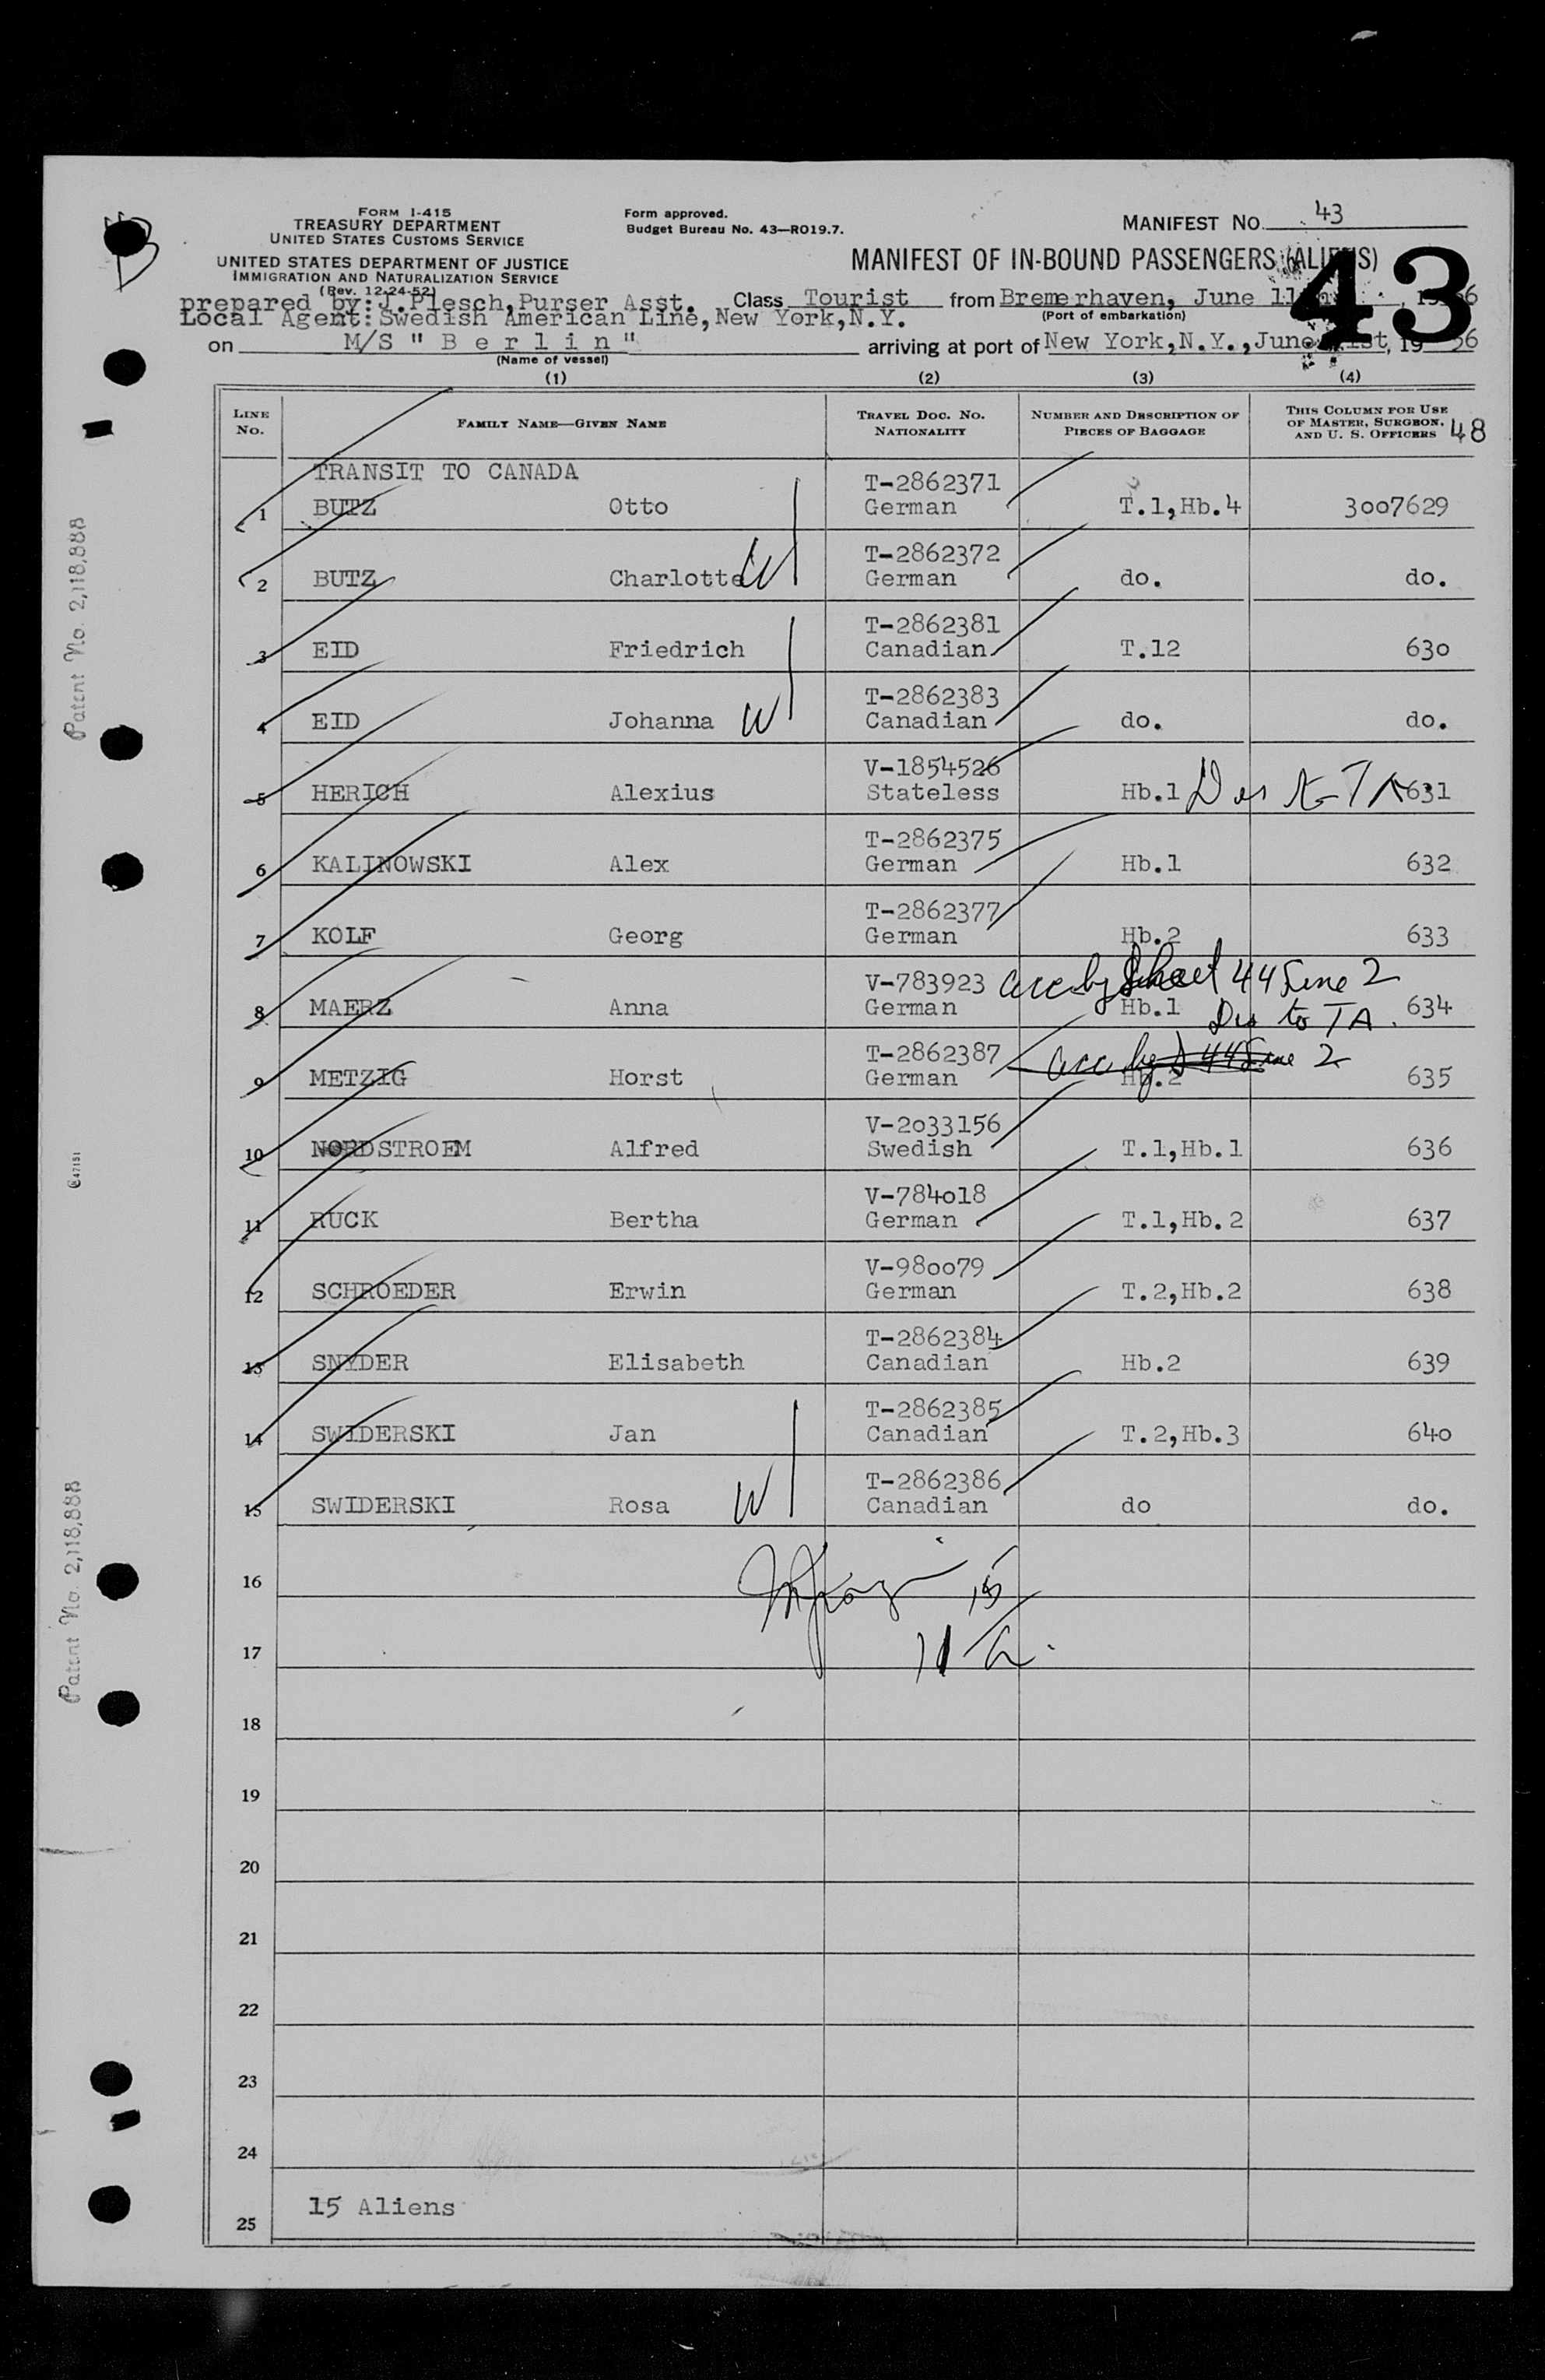 FORM I-415
TREASURY DEPARTMENT
UNITED STATES CUSTOMS SERVICE
UNITED STATES DEPARTMENT OF JUSTICE
IMMIGRATION AND NATURALIZATION SERVICE
(Rev. 12-24-52)
Form approved.
Budget Bureau No. 43—RO19.7.
MANIFEST NO. 43
MANIFEST OF IN-BOUND PASSENGERS (ALIENS)
43
prepared by: J. Plesch, Purser Asst. Class Tourist from Bremerhaven, June
Local Agent: Swedish American Line, New York, N.Y. (Port of embarkation)
on M/S " B e r l i n " arriving at port of New York, N.Y., June
(Name of vessel)
(1) (2) (3) (4)
LINE NO. FAMILY NAME—GIVEN NAME TRAVEL DOC. NO. NATIONALITY NUMBER AND DESCRIPTION OF PIECES OF BAGGAGE THIS COLUMN FOR USE OF MASTER, SURGEON, AND U. S. OFFICERS 48
TRANSIT TO CANADA T-2862371
1 BUTZ Otto German T.1,Hb.4 3007629
T-2862372
2 BUTZ Charlotte W German do. do.
T-2862381
3 EID Friedrich Canadian T.12 630
T-2862383
4 EID Johanna W Canadian do. do.
V-1854526
5 HERICH Alexius Stateless Hb.1 631
T-2862375
6 KALINOWSKI Alex German Hb.1 632
T-2862377
7 KOLF Georg German Hb.2 633
V-783923 acc by Sheet 44 Line 2
8 MAERZ Anna German Hb.1 Des to TA. 634
T-2862387 acc by 44 Line 2
9 METZIG Horst German Hb.2 635
V-2033156
10 NORDSTROEM Alfred Swedish T.1,Hb.1 636
V-784018
11 RUCK Bertha German T.1,Hb.2 637
V-980079
12 SCHROEDER Erwin German T.2,Hb.2 638
T-2862384
13 SNYDER Elisabeth Canadian Hb.2 639
T-2862385
14 SWIDERSKI Jan Canadian T.2,Hb.3 640
T-2862386
15 SWIDERSKI Rosa W Canadian do do.
16 15
17
18
19
20
21
22
23
24
25 15 Aliens
Patent No. 2,118,888
Patent No. 2,118,888